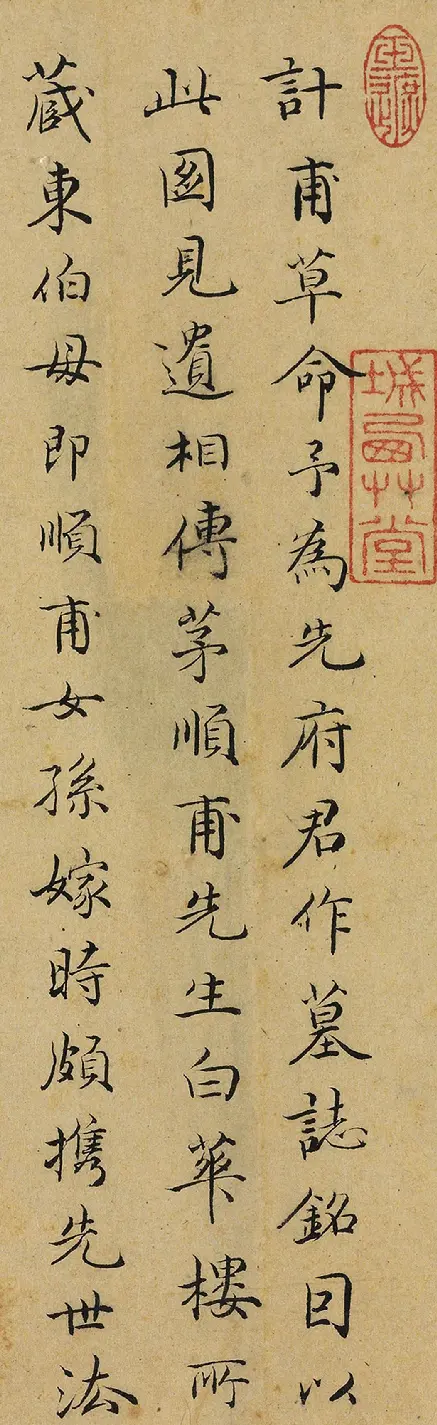 計甫草命予為先府君作墓誌銘因以
此圖見遺相傳茅順甫先生白華樓所
蔵東伯母即順甫女孫嫁時頗攜先世法